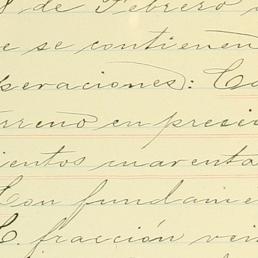 8 de Febrero
e se contienen
peraciones: Ca
rreno en preci
ientos cuarenta
Con fundame
C. fracción vei